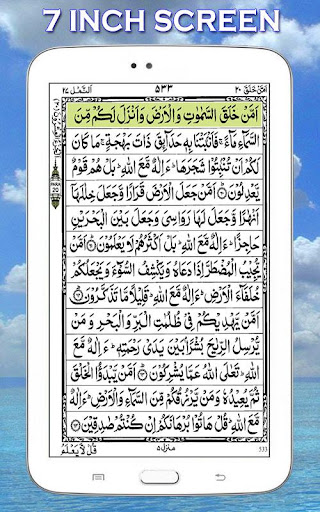 7 INCH SCREEN
اَمَّنْ خَلَقَ ٢٠ ٥٣٣ اَلنَّمْل ٢٧
اَمَّنْ خَلَقَ السَّمٰوٰتِ وَالْاَرْضَ وَاَنْزَلَ لَكُمْ مِّنَ
السَّمَآءِ مَآءً ۚ فَاَنْۢبَتْنَا بِهٖ حَدَآئِقَ ذَاتَ بَهْجَةٍ ۚ مَا كَانَ
لَكُمْ اَنْ تُنْۢبِتُوْا شَجَرَهَا ؕ ءَاِلٰهٌ مَّعَ اللّٰهِ ؕ بَلْ هُمْ قَوْمٌ
يَّعْدِلُوْنَ ۞ اَمَّنْ جَعَلَ الْاَرْضَ قَرَارًا وَّجَعَلَ خِلٰلَهَاۤ
اَنْهٰرًا وَّجَعَلَ لَهَا رَوَاسِيَ وَجَعَلَ بَيْنَ الْبَحْرَيْنِ
حَاجِزًا ؕ ءَاِلٰهٌ مَّعَ اللّٰهِ ؕ بَلْ اَكْثَرُهُمْ لَا يَعْلَمُوْنَ ۞ اَمَّنْ
يُّجِيْبُ الْمُضْطَرَّ اِذَا دَعَاهُ وَيَكْشِفُ السُّوْٓءَ وَيَجْعَلُكُمْ
خُلَفَآءَ الْاَرْضِ ؕ ءَاِلٰهٌ مَّعَ اللّٰهِ ؕ قَلِيْلًا مَّا تَذَكَّرُوْنَ ۞
اَمَّنْ يَّهْدِيْكُمْ فِيْ ظُلُمٰتِ الْبَرِّ وَالْبَحْرِ وَمَنْ
يُّرْسِلُ الرِّيٰحَ بُشْرًاۢ بَيْنَ يَدَيْ رَحْمَتِهٖ ؕ ءَاِلٰهٌ مَّعَ
اللّٰهِ ؕ تَعٰلَى اللّٰهُ عَمَّا يُشْرِكُوْنَ ۞ اَمَّنْ يَّبْدَؤُا الْخَلْقَ
ثُمَّ يُعِيْدُهٗ وَمَنْ يَّرْزُقُكُمْ مِّنَ السَّمَآءِ وَالْاَرْضِ ؕ ءَاِلٰهٌ
مَّعَ اللّٰهِ ؕ قُلْ هَاتُوْا بُرْهَانَكُمْ اِنْ كُنْتُمْ صٰدِقِيْنَ ۞
PARA
20
منزل ٥
قُلْ لَّا يَعْلَمُ
533